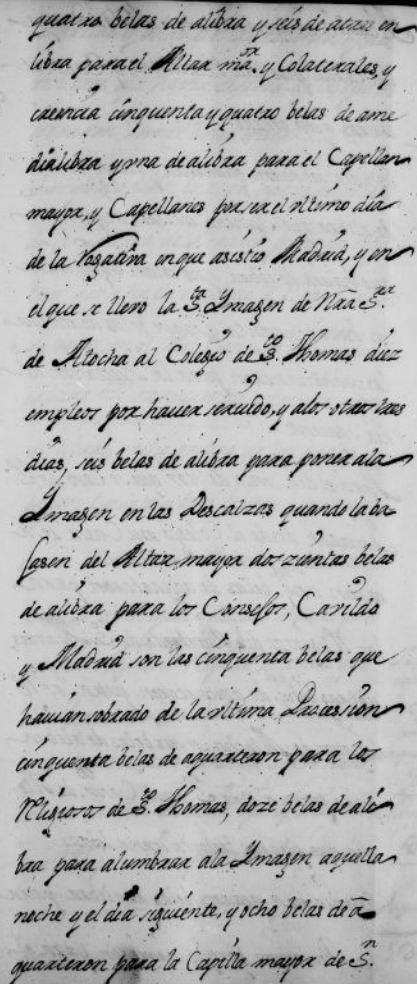 quatro belas de alibra y seis de atres en
libra para el Altar maor. y Colaterales, y
cinquenta y quatro belas de ame
dialibra y vna de alibra para el Capellan
mayor, y Capellanes por ser el vltimo dia
de la Rogatiba en que asistio Madrid, y en
el que se lleuo la Sta. Ymagen de Nra Sra.
de Atocha al Colegio de Sto. Thomas diez
empleos por hauer seruido, y alos otros tres
dias, seis belas de alibra para poner ala
Ymagen en las Descalzas quando la ba
jasen del Altar mayor doszientas belas
de alibra para los Consejos, Cauildo
y Madrid son las cinquenta belas que
hauian sobrado de la vltima Procession
cinquenta belas de aquarteron para los
Religiosos de Sto. Thomas, doze belas de ali
bra para alumbrar ala Ymagen aquella
noche y el dia siguiente, y ocho belas de a
quarteron para la Capilla mayor de Sn.